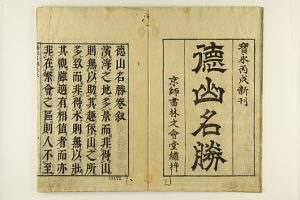 寶永丙戌新刊
德山名勝
京師書林文會堂繡梓
德山名勝卷叙
濱海之地多景而非得山
則無以助其趣保山之所
多致而非得水則無以壯
其觀雖適有相值者而亦
非在繁會之區則人不至